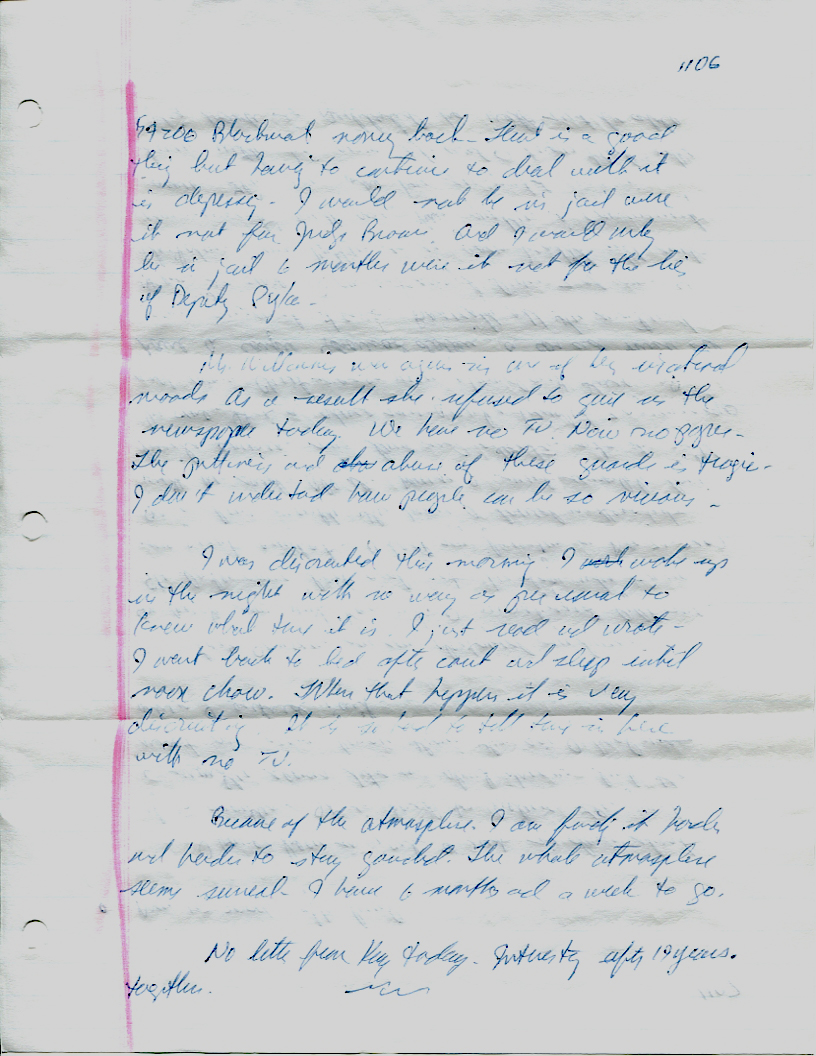 1106
Blackmail money back. That is a good
thing but having to continue to deal with it
is depressing. I would not be in jail were
it not for Judge Brown. And I would only
be in jail 6 months were it not for the lies
of Deputy
was again in one of her irrational
moods. As a result she refused to give us the
newspaper today. We have no TV. Now no paper.
The pettiness and abuse of these guards is tragic.
I don't understand how people can be so vicious.
I was disoriented this morning. I woke up
in the night with no way as per usual to
know what time it is. I just read and wrote.
I went back to bed after count and slept until
noon chow. When that happens it is very
disorienting. It is so hard to tell time in here
with no TV.
Because of the atmosphere. I am finding it harder
and harder to stay grounded. The whole atmosphere
seems surreal. I have 6 months and a week to go.
No letter from Kay today. Interesting after 19 years
together.